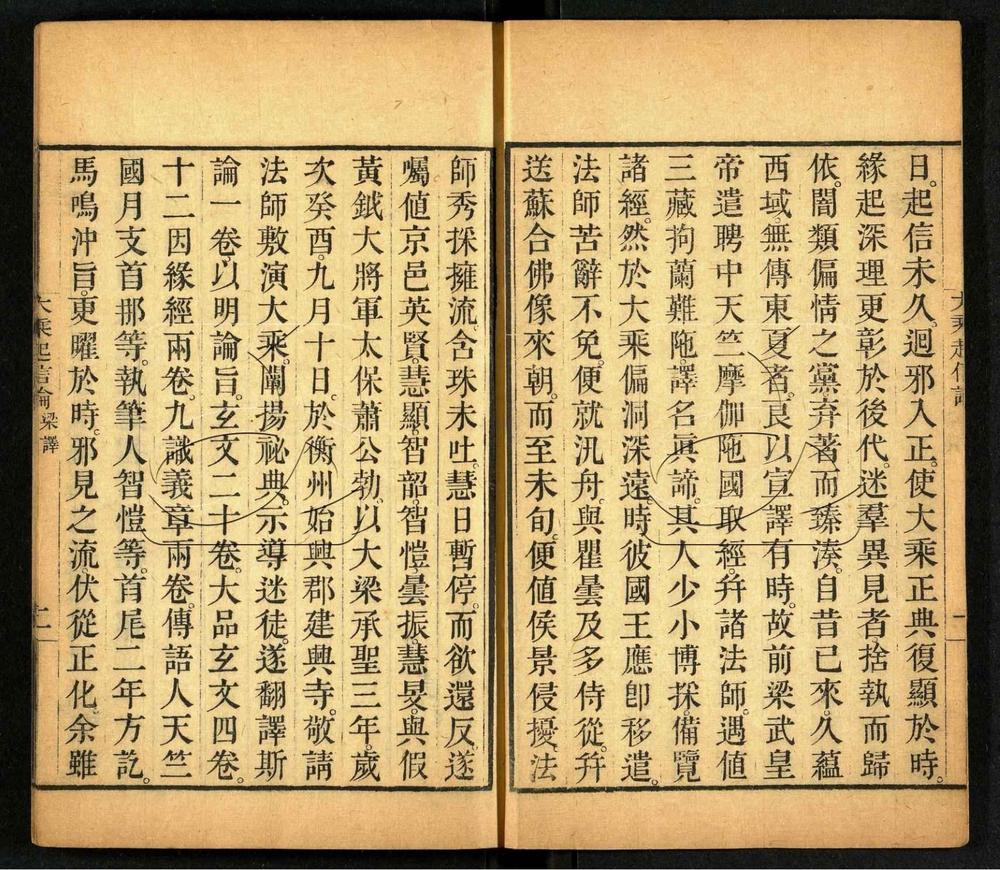 日。起信未久。迴邪入正。使大乘正典復顯於時。
緣起深理更彰於後代。迷羣異見者捨執而歸
依。闇類偏情之黨弃著而臻湊。自昔已來。久蘊
西域。無傳東夏者。良以宣譯有時。故前梁武皇
帝遣聘中天竺摩伽陁國取經。幷諸法師。遇値
三藏拘蘭難陁。譯名眞諦。其人少小博採。備覽
諸經。然於大乘偏洞深遠。時彼國王應卽移遣。
法師苦辭不免。便就汎舟。與瞿曇及多侍從。幷
送蘇合佛像來朝。而至未旬。便値侯景侵擾。法
師秀採擁流。含珠未吐。慧日暫停。而欲還反。遂
囑値京邑英賢。慧顯。智韶。智愷。曇振。慧旻。與假
黃鉞大將軍太保蕭公勃。以大梁承聖三年。歲
次癸酉。九月十日。於衡州始興郡建興寺。敬請
法師敷演大乘。闡揚祕典。示導迷徒。遂翻譯斯
論一卷。以明論旨。玄文二十卷。大品玄文四卷。
十二因緣經兩卷。九識義章兩卷。傳語人天竺
國月支首那等。執筆人智愷等。首尾二年方訖。
馬鳴沖旨。更曜於時。邪見之流。伏從正化。余雖
大乘起信論 梁譯
二